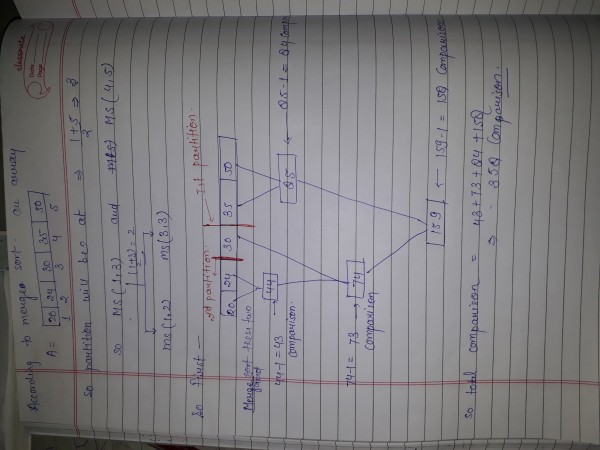 classmate
Date
Page
According to merge sort - an array
A = 20 24 30 35 50
1 2 3 4 5
so partition will be at ⇒ 1+5/2 ⇒ 3
so MS(1,3) and MS(4,5)
(1+3)/2 = 2
ms(1,2) ms(3,3)
So First —
2nd partition. Ist partition.
20 24 30 35 50
Merge sort these two
44 85 ← 85-1 = 84 comp
44-1 = 43
comparison.
74
74-1 = 73 →
Comparison
159 ← 159-1 = 158 Comparison
so total comparison = 43+73+84+158
⇒ 358 Comparison.